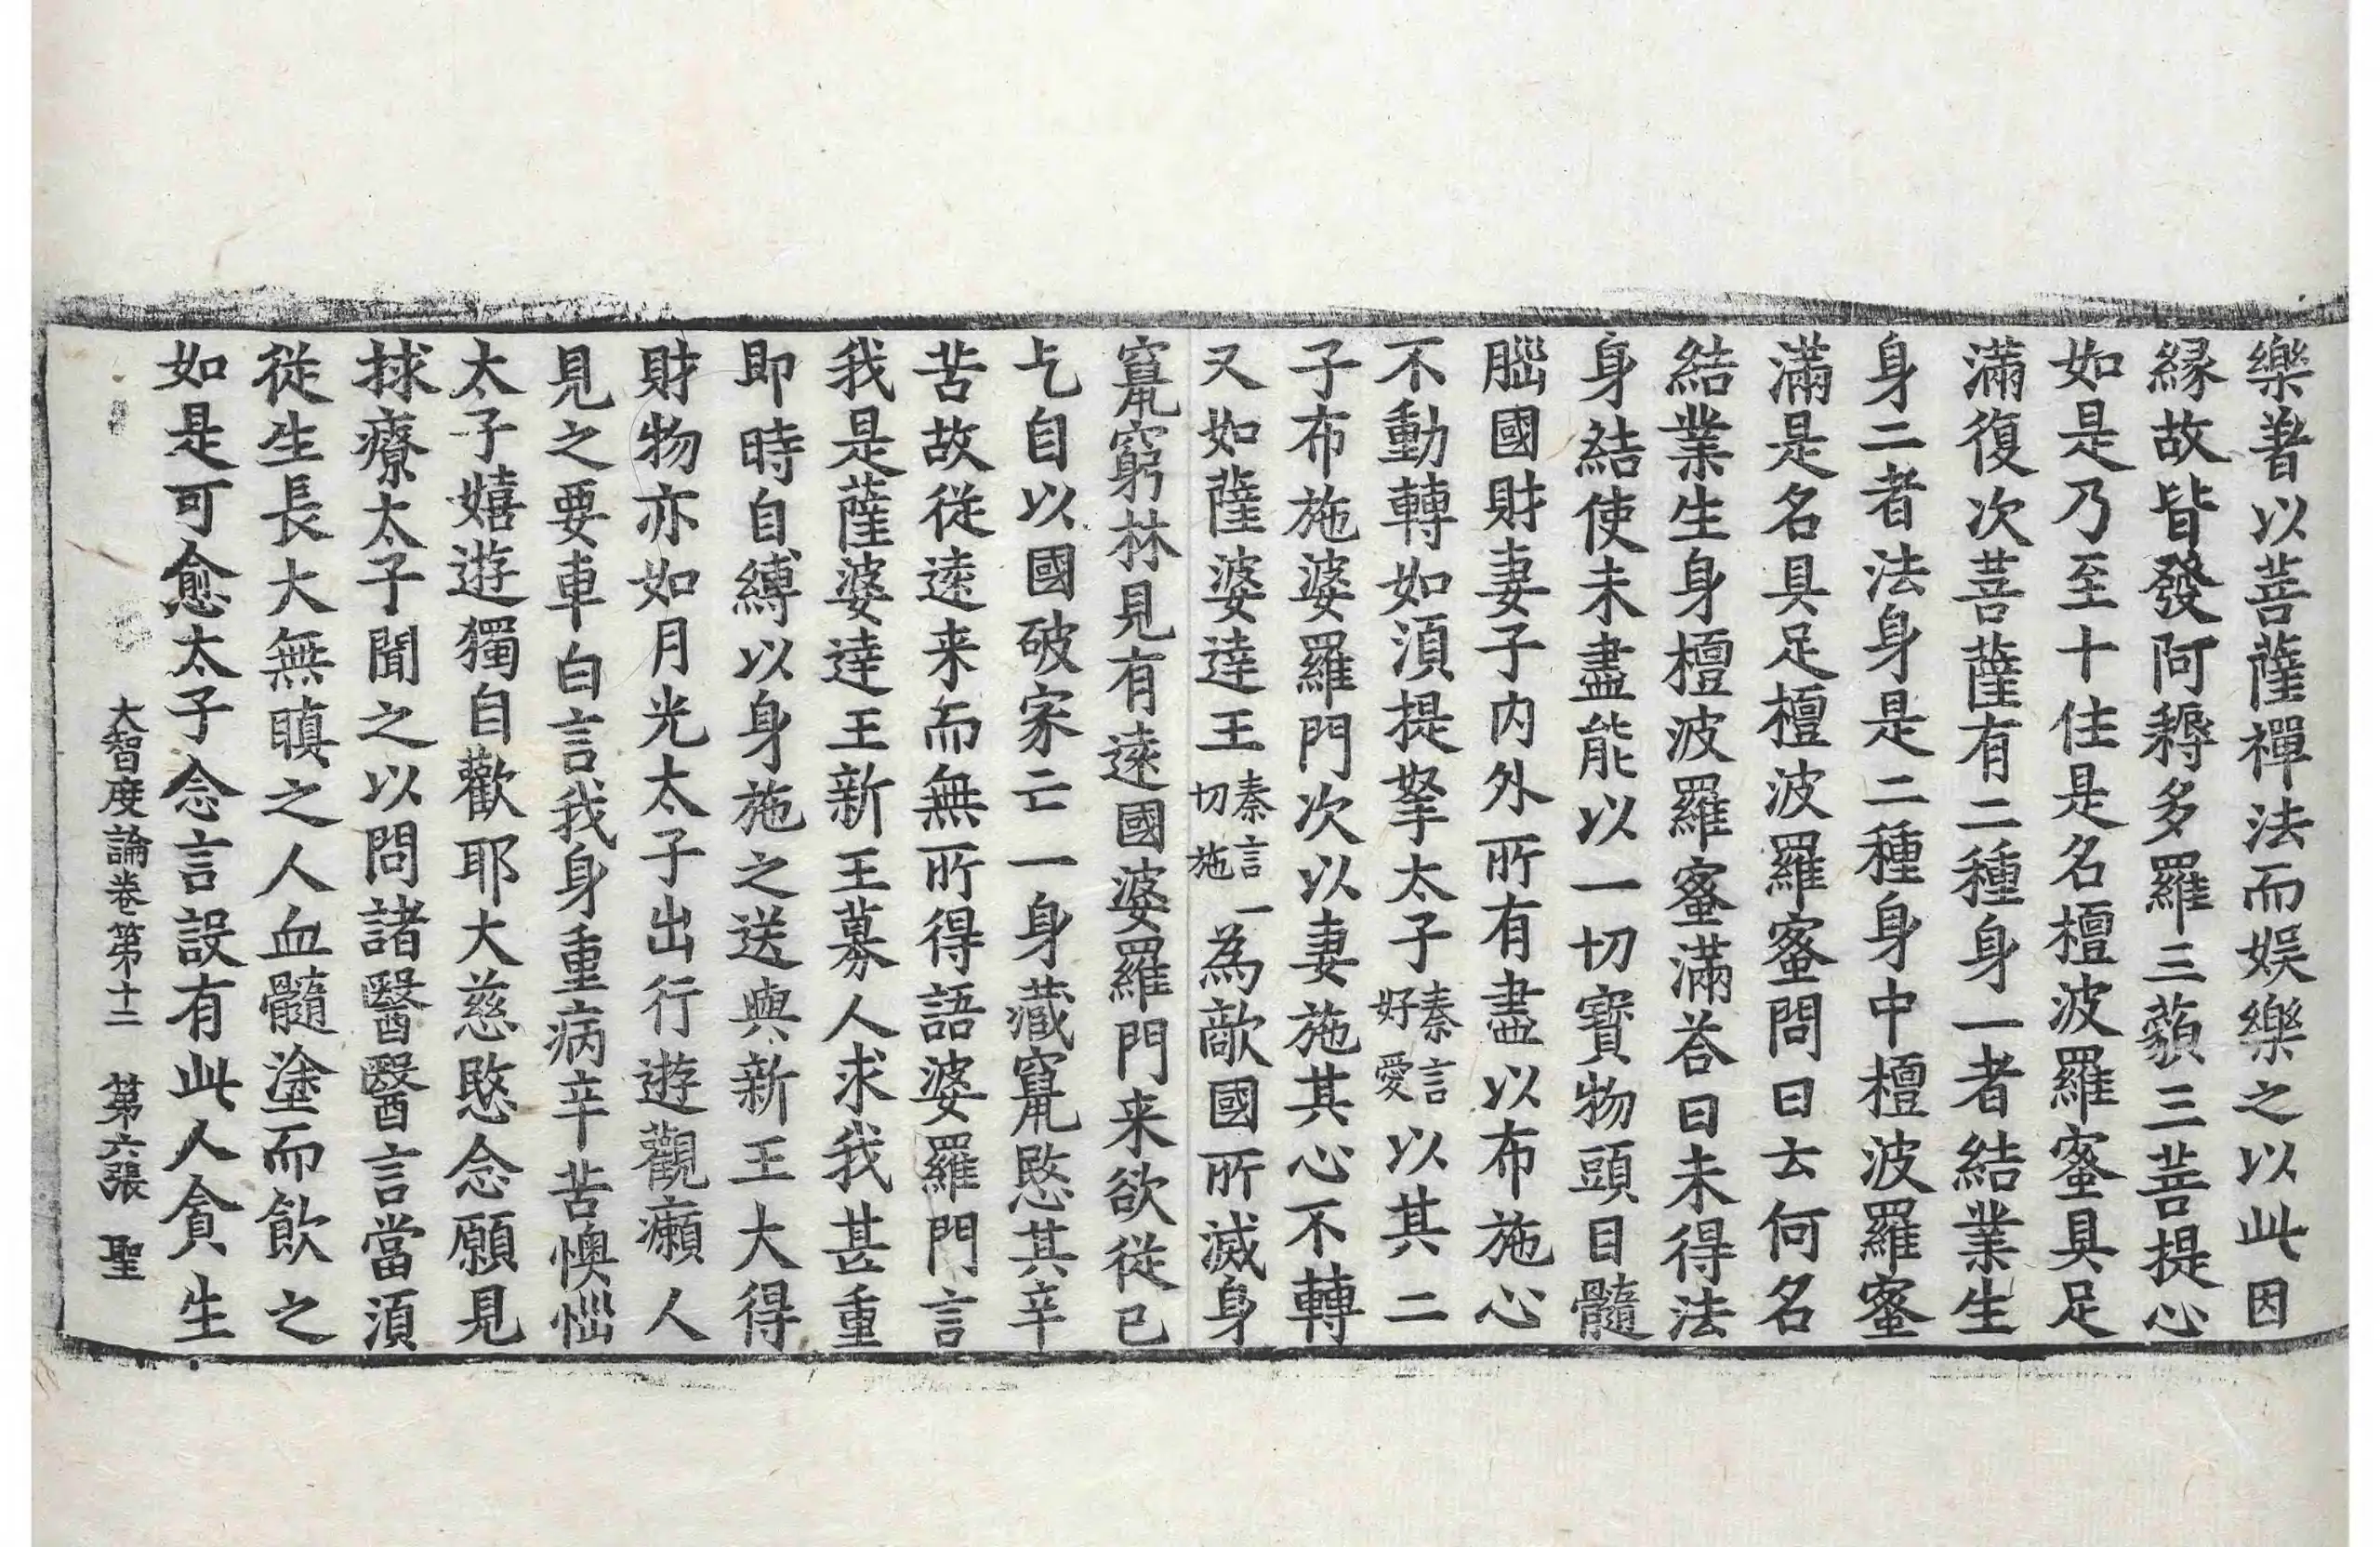 樂著以菩薩禪法而娛樂之以此因
緣故皆發阿耨多羅三藐三菩提心
如是乃至十住是名檀波羅蜜具足
滿復次菩薩有二種身一者結業生
身二者法身是二種身中檀波羅蜜
滿是名具足檀波羅蜜問曰云何名
結業生身檀波羅蜜滿荅曰未得法
身結使未盡能以一切寶物頭目髓
腦國財妻子内外所有盡以布施心
不動轉如湏提拏太子秦言好愛以其二
子布施婆羅門次以妻施其心不轉
又如薩婆達王秦言一切施為敵國所滅身
竄窮林見有遠國婆羅門来欲從己
乞自以國破家亡一身藏竄愍其辛
苦故從遠来而無所得語婆羅門言
我是薩婆達王新王募人求我甚重
即時自縛以身施之送與新王大得
財物亦如月光太子出行遊觀癩人
見之要車白言我身重病辛苦懊惱
太子嬉遊獨自歡耶大慈愍念願見
救療太子聞之以問諸醫醫言當湏
從生長大無瞋之人血髓塗而飲之
如是可愈太子念言設有此人貪生
大智度論卷第十二　第六張　聖